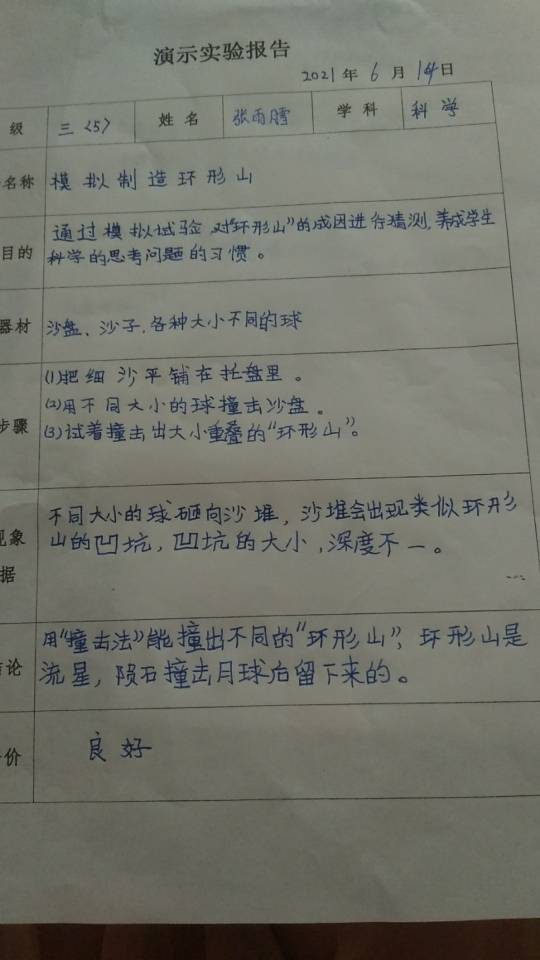 演示实验报告
2021年6月14日
级 三〈5〉 姓名 张雨 学科 科学
名称 模拟制造环形山
目的 通过模拟试验,对“环形山”的成因进行猜测,养成学生
科学的思考问题的习惯。
器材 沙盘、沙子,各种大小不同的球
(1)把细沙平铺在托盘里。
(2)用不同大小的球撞击沙盘。
步骤 (3)试着撞击出大小重叠的“环形山”。
不同大小的球砸向沙堆,沙堆会出现类似环形
现象 山的凹坑,凹坑的大小,深度不一。
据
用“撞击法”能撞出不同的“环形山”,环形山是
结论 流星,陨石撞击月球后留下来的。
价 良好